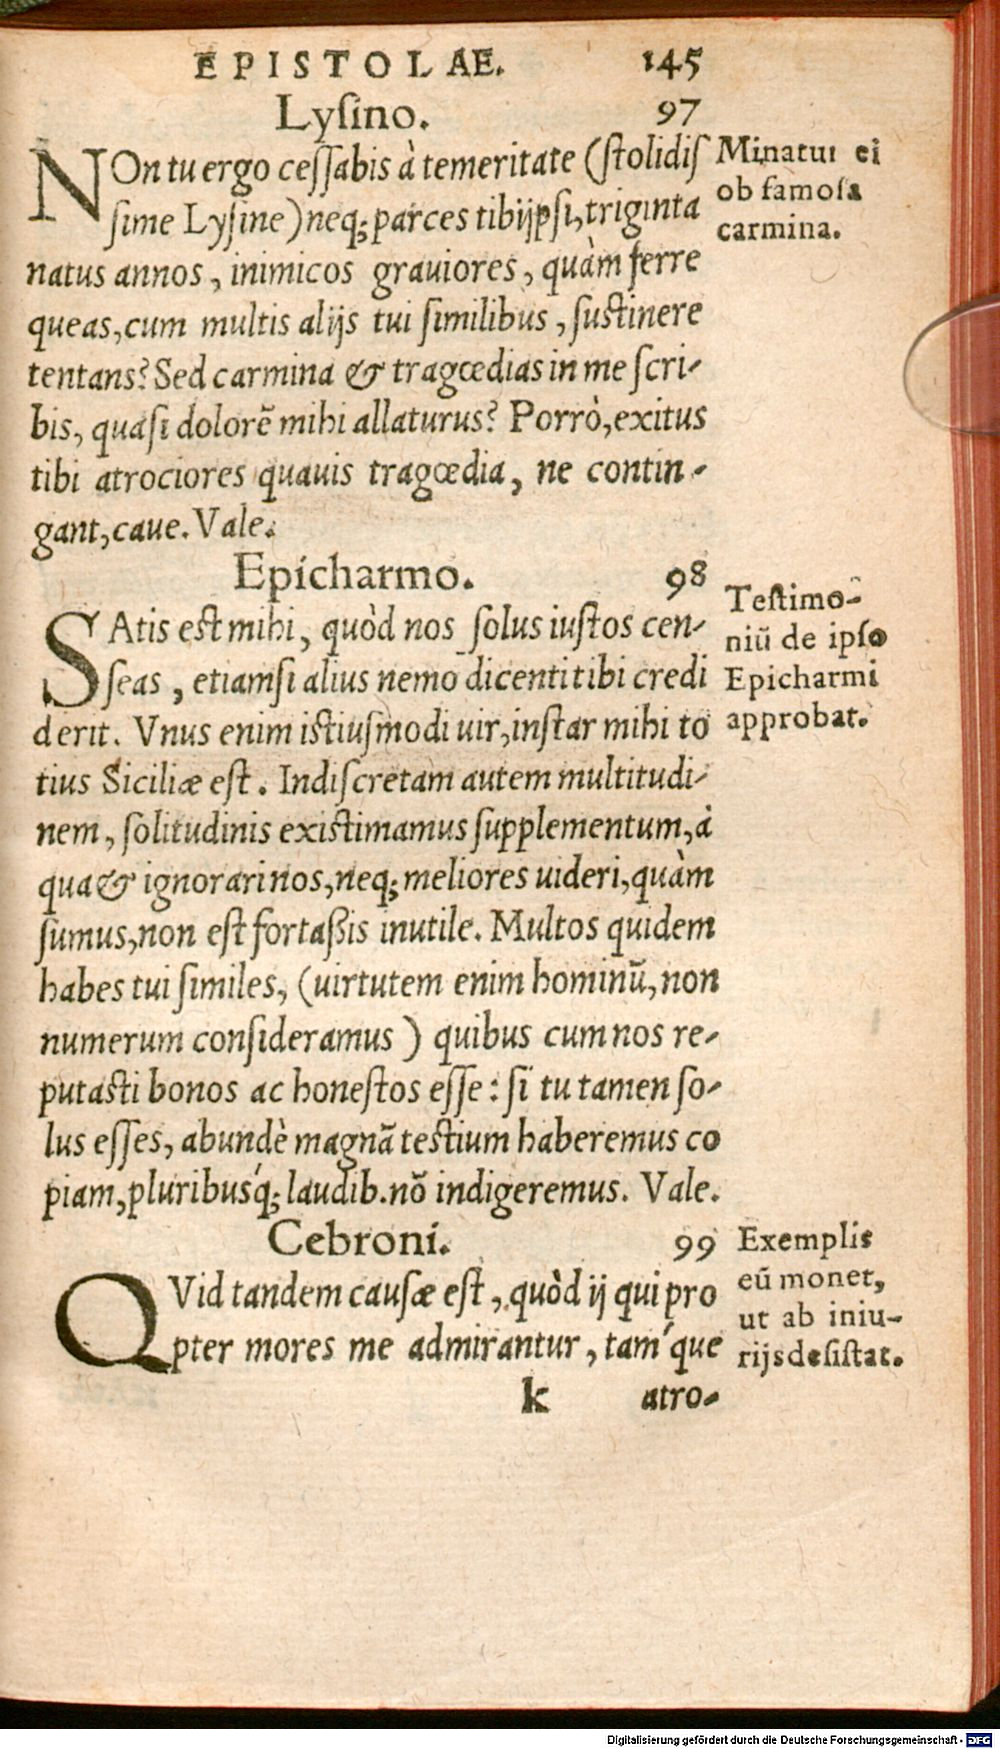 EPISTOLAE. 145
Lyſino. 97
NOn tu ergo ceſſabis à temeritate (ſtolidiſ
ſime Lyſine) neq; parces tibi ijpſi, triginta
natus annos, inimicos grauiores, quàm ferre
queas, cum multis alijs tui ſimilibus, ſuſtinere
tentans? Sed carmina & tragœdias in me ſcri-
bis, quaſi dolorē mihi allaturus? Porrò, exitus
tibi atrociores quauis tragœdia, ne contin-
gant, caue. Vale.
Minatur ei
ob famoſa
carmina.
Epicharmo. 98
SAtis eſt mihi, quòd nos ſolus iuſtos cen-
ſeas, etiamſi alius nemo dicenti tibi credi
derit. Vnus enim iſtiuſmodi uir, inſtar mihi to
tius Siciliæ eſt. Indiſcretam autem multitudi-
nem, ſolitudinis exiſtimamus ſupplementum, à
qua & ignorari nos, neq; meliores uideri, quàm
ſumus, non eſt fortaßis inutile. Multos quidem
habes tui ſimiles, (uirtutem enim hominū, non
numerum conſideramus) quibus cum nos re-
putaſti bonos ac honeſtos eſſe: ſi tu tamen ſo-
lus eſſes, abundè magnā teſtium haberemus co
piam, pluribusq́; laudib. nō indigeremus. Vale.
Teſtimo-
niū de ipſo
Epicharmi
approbat.
Cebroni. 99
QVid tandem cauſæ eſt, quòd ij qui pro
pter mores me admirantur, taḿque
Exemplis
eū monet,
ut ab iniu-
rijs deſiſtat.
k atro-
Digitalisierung gefördert durch die Deutsche Forschungsgemeinschaft - DFG